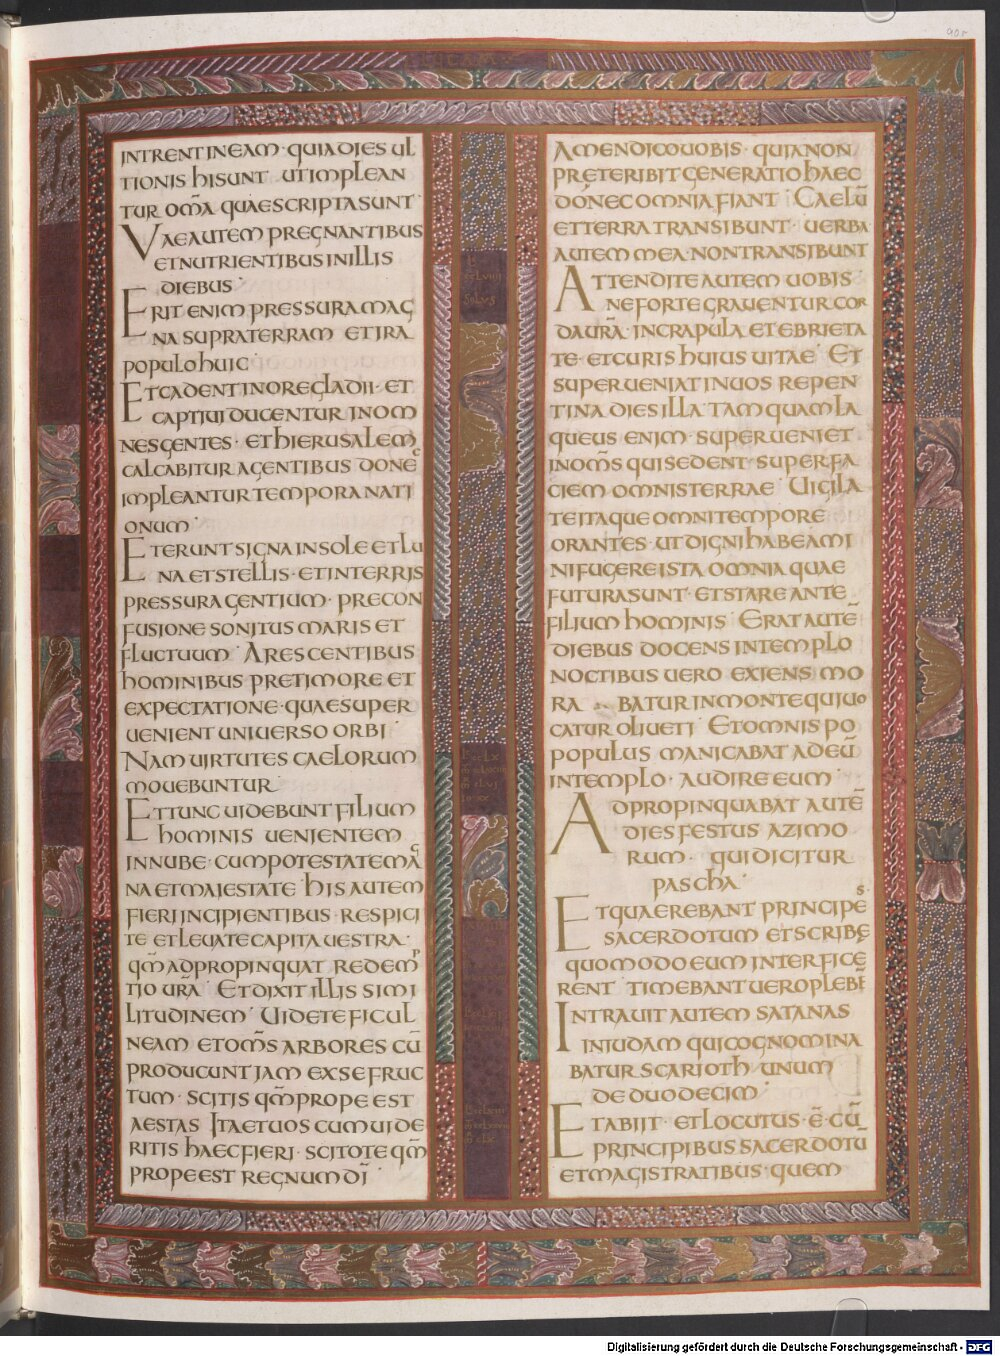 90r
INTRENT IN EAM · QUIA DIES UL
TIONIS HI SUNT UT IMPLEAN
TUR OM̄A QUAE SCRIPTA SUNT
VAE AUTEM PREGNANTIBUS
ET NUTRIENTIBUS IN ILLIS
DIEBUS
ERIT ENIM PRESSURA MAG
NA SUPRA TERRAM ET IRA
POPULO HUIC
ET CADENT IN ORE GLADII · ET
CAPTIUI DUCENTUR IN OM
NES GENTES · ET HIERUSALEM
CALCABITUR A GENTIBUS DONEC
IMPLEANTUR TEMPORA NATI
ONUM ·
ET ERUNT SIGNA IN SOLE ET LU
NA ET STELLIS · ET IN TERRIS
PRESSURA GENTIUM · PRE CON
FUSIONE SONITUS MARIS ET
FLUCTUUM · ARESCENTIBUS
HOMINIBUS PRE TIMORE ET
EXPECTATIONE · QUAE SUPER
UENIENT UNIUERSO ORBI ·
NAM UIRTUTES CAELORUM
MOUEBUNTUR ·
ET TUNC UIDEBUNT FILIUM
HOMINIS UENIENTEM
IN NUBE · CUM POTESTATE MAG
NA ET MAIESTATE · HIS AUTEM
FIERI INCIPIENTIBUS · RESPICI
TE ET LEUATE CAPITA UESTRA ·
QM̄ ADPROPINQUAT REDEMP
TIO URĀ · ET DIXIT ILLIS SIMI
LITUDINEM · UIDETE FICUL
NEAM ET OM̄S ARBORES CŪ
PRODUCUNT IAM EX SE FRUC
TUM · SCITIS QM̄ PROPE EST
AESTAS ITA ET UOS CUM UIDE
RITIS HAEC FIERI · SCITOTE QM̄
PROPE EST REGNUM DĪ
AMEN DICO UOBIS · QUIA NON
PRETERIBIT GENERATIO HAEC
DONEC OMNIA FIANT · CAELŪ
ET TERRA TRANSIBUNT · UERBA
AUTEM MEA · NON TRANSIBUNT
ATTENDITE AUTEM UOBIS
NE FORTE GRAUENTUR COR
DA URĀ · IN CRAPULA ET EBRIETA
TE · ET CURIS HUIUS UITAE · ET
SUPERUENIAT IN UOS REPEN
TINA DIES ILLA · TAMQUAM LA
QUEUS ENIM · SUPERUENIET
IN OM̄S QUI SEDENT · SUPER FA
CIEM OMNIS TERRAE · UIGILA
TE ITAQUE OMNI TEMPORE
ORANTES · UT DIGNI HABEAMI
NI FUGERE ISTA OMNIA QUAE
FUTURA SUNT · ET STARE ANTE
FILIUM HOMINIS · ERAT AUTĒ
DIEBUS DOCENS IN TEMPLO
NOCTIBUS UERO EXIENS MO
RABATUR IN MONTE QUI UO
CATUR OLIUETI · ET OMNIS PO
POPULUS MANICABAT AD EŪ
IN TEMPLO · AUDIRE EUM ·
ADPROPINQUABAT AUTĒ
DIES FESTUS AZIMO
RUM · QUI DICITUR
PASCHA ·
ET QUAEREBANT PRINCIPES
SACERDOTUM ET SCRIBĘ
QUOMODO EUM INTERFICE
RENT · TIMEBANT UERO PLEBĒ
INTRAUIT AUTEM SATANAS
IN IUDAM QUI COGNOMINA
BATUR SCARIOTH UNUM
DE DUODECIM ·
ET ABIIT · ET LOCUTUS · Ē CŪ
PRINCIPIBUS SACERDOTŪ
ET MAGISTRATIBUS · QUEM
Digitalisierung gefördert durch die Deutsche Forschungsgemeinschaft - DFG